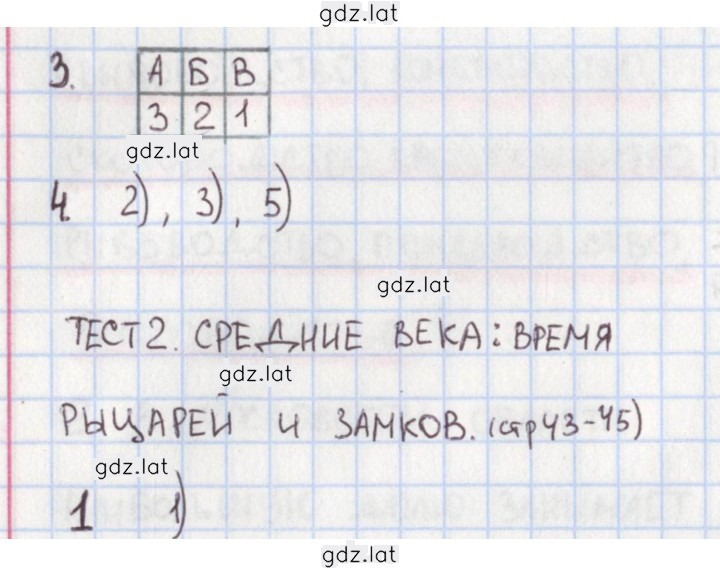 gdz.lat
3.
А Б В
3 2 1
gdz.lat
4 2), 3), 5)
gdz.lat
ТЕСТ 2. СРЕДНИЕ ВЕКА: ВРЕМЯ
gdz.lat
РЫЦАРЕЙ И ЗАМКОВ. (стр 43-45)
gdz.lat
1 1)
gdz.lat